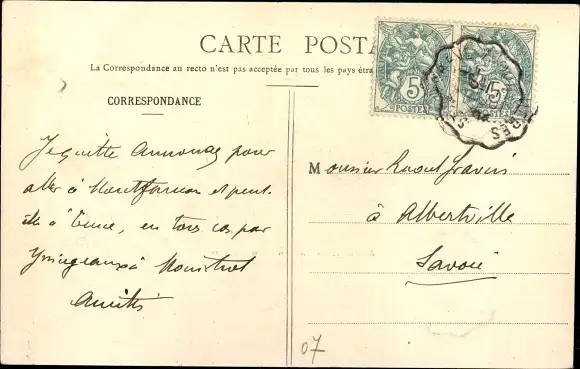 CARTE POSTA
La Correspondance au recto n'est pas acceptée par tous les pays étra
CORRESPONDANCE
Je quitte Annonay pour
aller à Montfaucon et peut-
être à Tence, en tous cas par
Yssingeaux à Monistrol
Amitiés
Monsieur Raoul
à Albertville
Savoie
5 5
POSTES POSTES
07